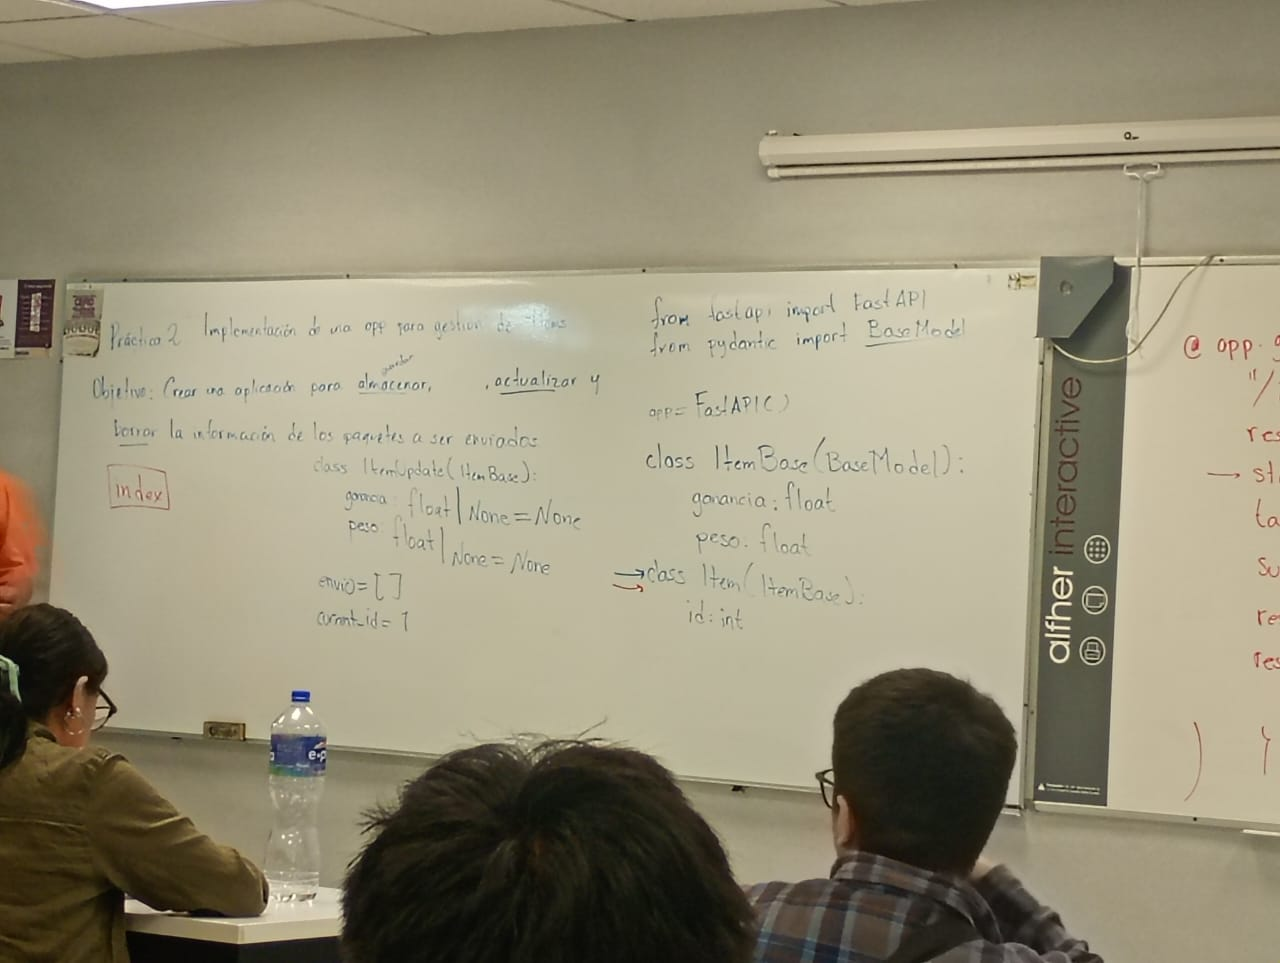 Práctica 2 Implementación de una app para gestión de items
guardar
Objetivo: Crear una aplicación para almacenar, , actualizar y
borrar la información de los paquetes a ser enviados
index
class ItemUpdate(ItemBase):
ganancia: float | None = None
peso: float | None = None
envio = [ ]
current_id = 1
from fastapi import FastAPI
from pydantic import BaseModel
app = FastAPI()
class ItemBase(BaseModel):
ganancia: float
peso: float
class Item(ItemBase):
id: int
alfher interactive
@ app.
"/
res
→ st
ta
su
re
res
)